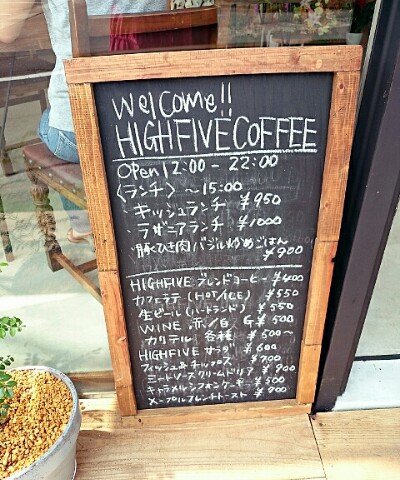 Welcome!!
HIGHFIVE COFFEE
OPEN 12:00 - 22:00
〈ランチ〉 ~15:00
・キッシュランチ ¥950
・ラザニアランチ ¥1000
・豚ひき肉バジル炒めごはん
¥900
HIGHFIVE ブレンドコーヒー ¥400
カフェラテ (HOT/ICE) ¥550
生ビール (ハートランド) ¥550
WINE 赤/白 G¥500
カクテル 各種 ¥500~
HIGHFIVE サラダ ¥600
フィッシュ&チップス ¥700
ミートソースクリームドリア ¥900
キャラメルシフォンケーキ ¥500
メープルフレンチトースト ¥700